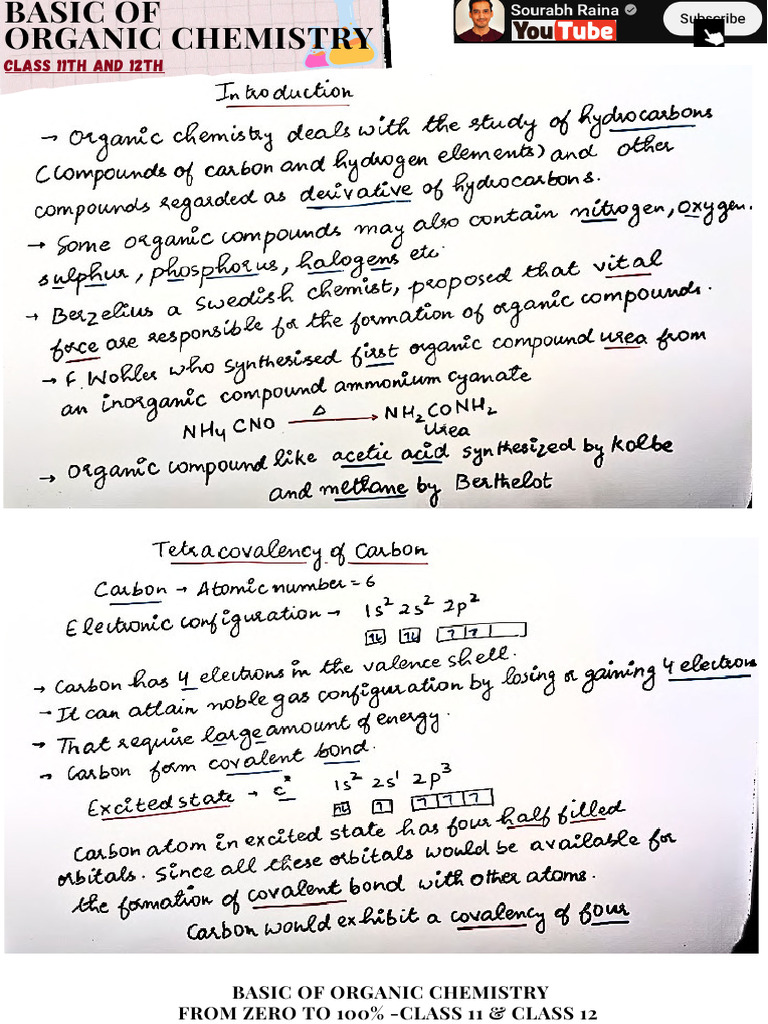 BASIC OF
ORGANIC CHEMISTRY
CLASS 11TH AND 12TH
Sourabh Raina
YouTube
Subscribe
Introduction
→ Organic chemistry deals with the study of hydrocarbons
(compounds of carbon and hydrogen elements) and other
compounds regarded as derivative of hydrocarbons.
→ Some organic compounds may also contain nitrogen, oxygen.
sulphur, phosphorus, halogens etc.
→ Berzelius a Swedish chemist, proposed that vital
force are responsible for the formation of organic compounds.
→ F. Wohler who synthesised first organic compound urea from
an inorganic compound ammonium cyanate
NH4 CNO —Δ→ NH2CONH2
Urea
→ Organic compound like acetic acid synthesized by Kolbe
and methane by Berthelot
Tetracovalency of Carbon
Carbon → Atomic number = 6
Electronic configuration → 1s² 2s² 2p²
↿⇂ ↿⇂ ↿ ↿
→ Carbon has 4 electrons in the valence shell.
→ It can attain noble gas configuration by losing or gaining 4 electron
→ That require large amount of energy.
→ Carbon form covalent bond.
Excited state → C* 1s² 2s¹ 2p³
↿⇂ ↿ ↿ ↿ ↿
Carbon atom in excited state has four half filled
orbitals. Since all these orbitals would be available for
the formation of covalent bond with other atoms.
Carbon would exhibit a covalency of four
BASIC OF ORGANIC CHEMISTRY
FROM ZERO TO 100% -CLASS 11 & CLASS 12